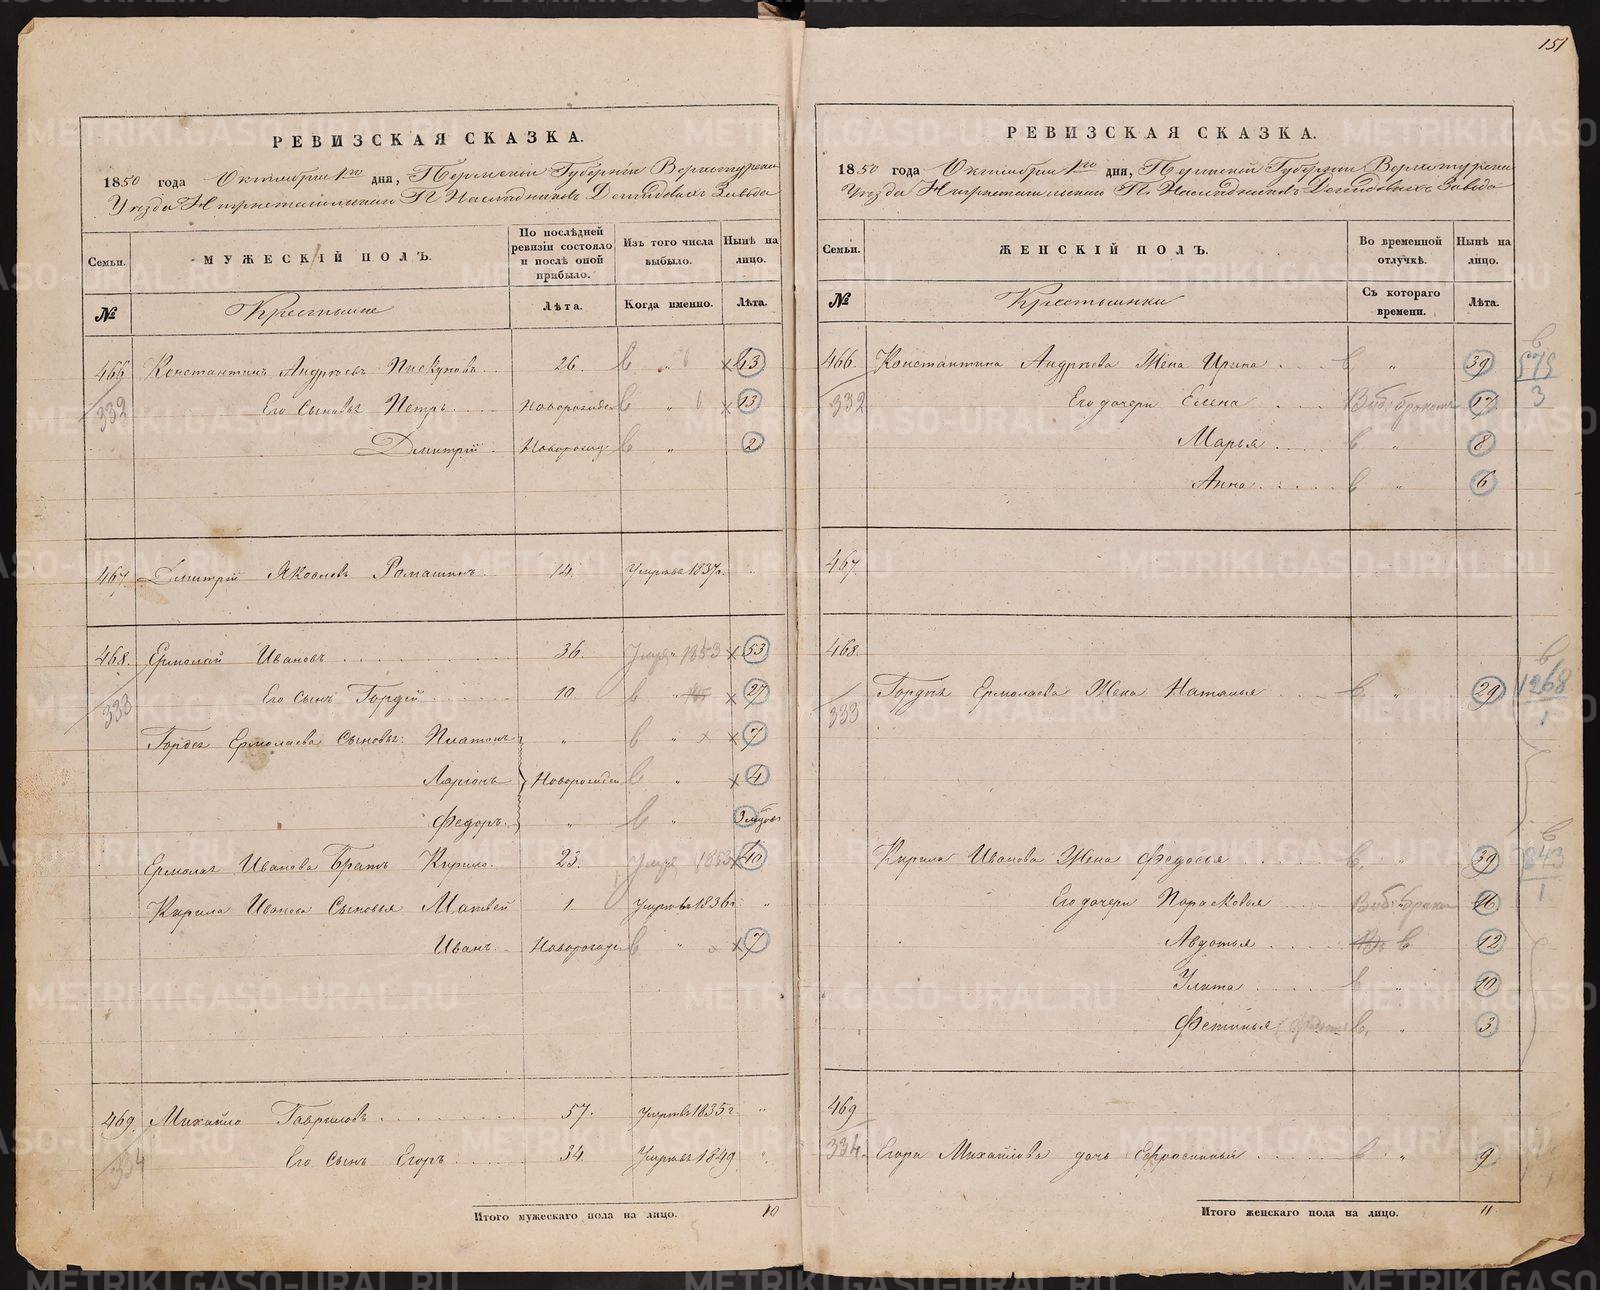 151
РЕВИЗСКАЯ СКАЗКА.
1850 года Октября 1го дня, Пермской Губернии Верхотурскаго
Уезда Нижнетагильскаго Гг. Наследниковъ Демидовыхъ Завода
Семьи.
МУЖЕСКІЙ ПОЛЪ.
По послѣдней ревизіи состояло и послѣ оной прибыло.
Изъ того числа выбыло.
Нынѣ на лицо.
№
Крестьяне
Лѣта.
Когда именно.
Лѣта.
466 Константинъ Андреевъ Пискуновъ 26. 43
332 Его Сыновья Петръ Новорожден 13
Дмитрій Новорожд 2
467. Дмитрій Яковлевъ Ромашинъ 14. Умертвъ 1837г. "
468. Ермолай Ивановъ 36. 1853 53
333 Его Сынъ Гордей 10. 27
Гордея Ермолаева Сыновья: Платонъ " 7
Ларіонъ Новорожден 4
Федоръ " 3 мѣсяц
Ермолая Иванова Братъ Кирило. 23. 1853 40
Кирила Иванова Сыновья Матвей 1. Умертвъ 1836г. "
Иванъ Новорожде 7
469. Михайло Гавриловъ 57. Умертвъ 1835г "
334 Его Сынъ Егоръ 34. Умертвъ 1849 "
Итого мужескаго пола на лицо. 10
РЕВИЗСКАЯ СКАЗКА.
1850 года Октября 1го дня, Пермской Губерніи Верхотурскаго
Уезда Нижнетагильскаго Гг. Наследниковъ Демидовыхъ Завода
Семьи.
ЖЕНСКІЙ ПОЛЪ.
Во временной отлучкѣ.
Нынѣ на лицо.
№
Крестьянки
Съ котораго времени.
Лѣта.
466. Константина Андреева Жена Ирина " 39
332 Его дочери Елена 17
Марья " 8
Анна " 6
575
3
467.
468.
333 Гордея Ермолаева Жена Наталья " 29
1268
1
Кирила Иванова Жена Федосья " 39
843
1
Его дочери Парасковья 16
Авдотья 12
Улита " 10
Фетинья " 3
469
334. Егора Михайлова дочь Ефросинья " 9
Итого женскаго пола на лицо. 11
METRIKI.GASO-URAL.RU